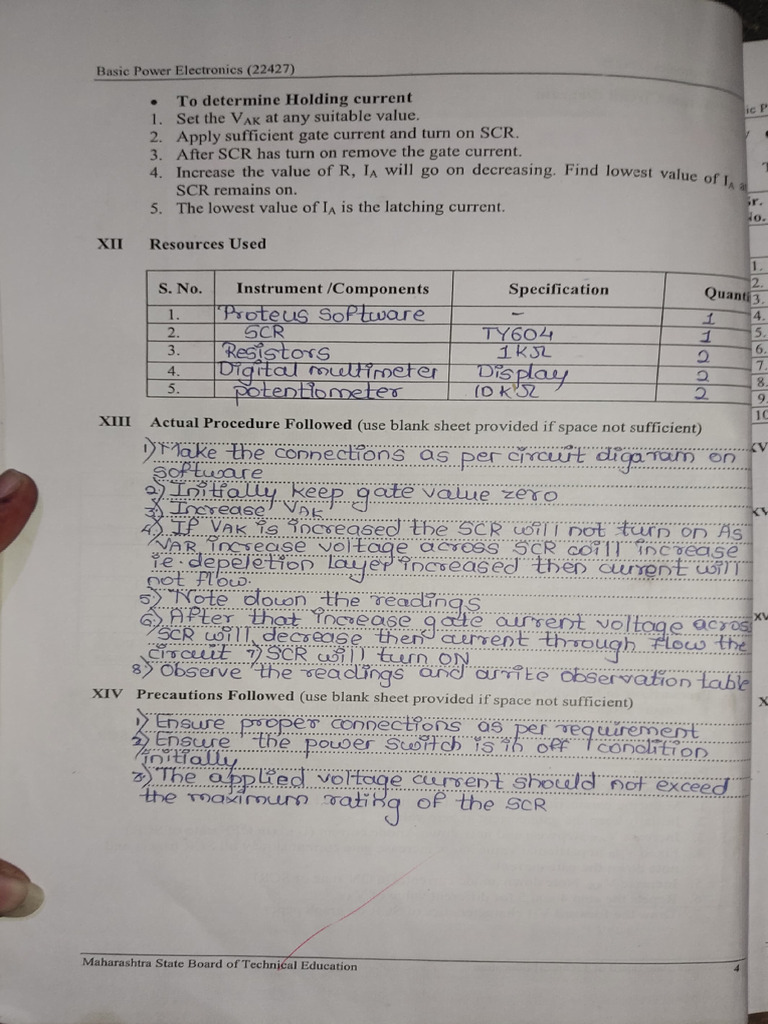 Basic Power Electronics (22427)
• To determine Holding current
1. Set the VAK at any suitable value.
2. Apply sufficient gate current and turn on SCR.
3. After SCR has turn on remove the gate current.
4. Increase the value of R, IA will go on decreasing. Find lowest value of IA
SCR remains on.
5. The lowest value of IA is the latching current.
XII Resources Used
S. No. Instrument /Components Specification Quanti
1. Proteus Software - 1
2. SCR TY604 1
3. Resistors 1KΩ 2
4. Digital multimeter Display 2
5. potentiometer 10KΩ 2
XIII Actual Procedure Followed (use blank sheet provided if space not sufficient)
1) Make the connections as per circuit digaram on
software
2) Initially keep gate value zero
3) Increase VAK
4) If VAK is increased the SCR will not turn on As
VAR increase voltage across SCR will increase
ie. depeletion layer increased then current will
not flow.
5) Note down the readings
6) After that increase gate current voltage across
SCR will decrease then current through flow the
circuit 7) SCR will turn ON
8) Observe the readings and write observation table
XIV Precautions Followed (use blank sheet provided if space not sufficient)
1) Ensure proper connections as per requirement
2) Ensure the power switch is in off condition
initially
3) The applied voltage current should not exceed
the maximum rating of the SCR
Maharashtra State Board of Technical Education
4
ic P
Sr.
No.
1.
2.
3.
4.
5.
6.
7.
8.
9.
10
XV
XV
XV
X